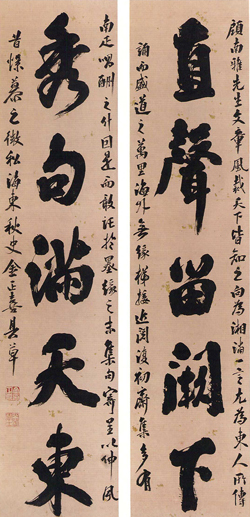 顧南雅先生文章風裁天下皆知之向為湘尤為東人所傳
直聲留闕下
誦而盛道之萬里海外無緣梯接近閱復初齋集多有
南疋酬之什因是而敢託於墨緣之末集句寄呈以伸夙
秀句滿天東
昔慕之微忱海東秋史金正喜具草